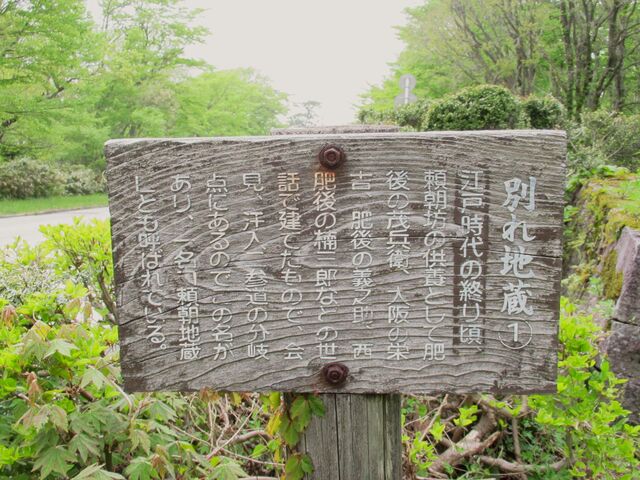 別れ地蔵①
江戸時代の終り頃
頼朝坊の供養として肥
後の茂兵衛、大阪の栄
吉、肥後の義之助、西
肥後の楠二郎などの世
話で建てたもので、会
見、汗入、参道の分岐
点にあるのでこの名が
あり、一名、頼朝地蔵
とも呼ばれている。